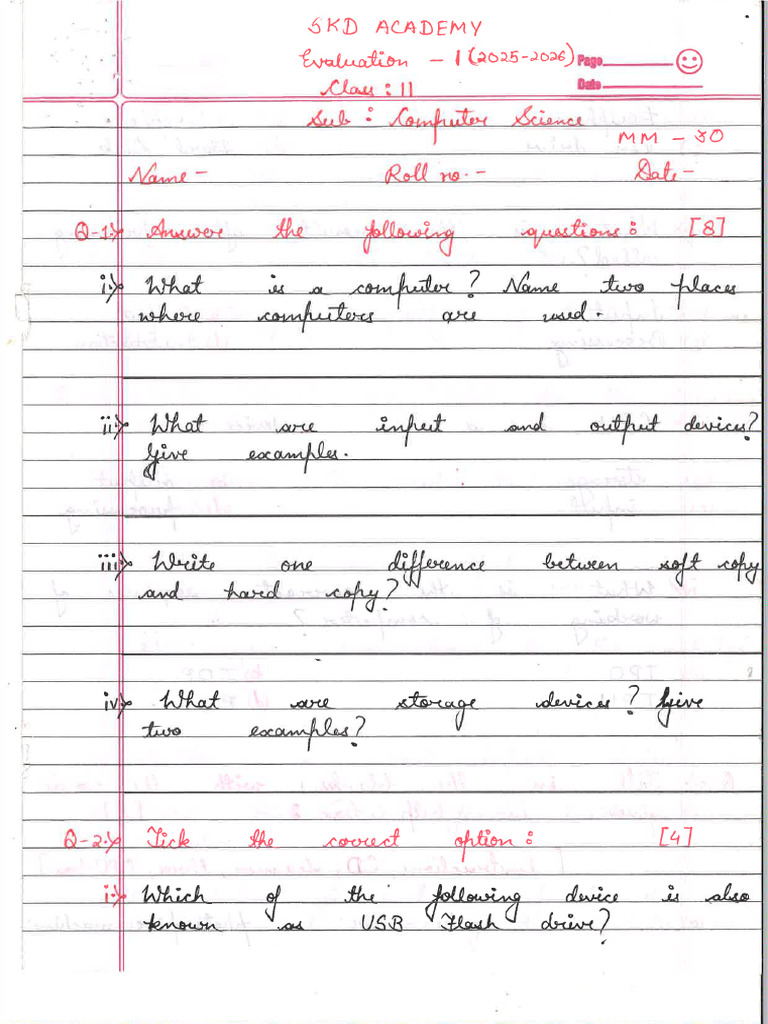 SKD ACADEMY
Evaluation - 1 (2025-2026)
Page
Date
Class : II
Sub : Computer Science
MM - 30
Name - Roll no. - Date -
Q-1.> Answer the following questions : [8]
i.> What is a computer? Name two places
where computers are used.
ii.> What are input and output devices?
Give examples.
iii.> Write one difference between soft copy
and hard copy?
iv.> What are storage devices? Give
two examples?
Q-2.> Tick the correct option : [4]
i.> Which of the following device is also
known as USB Flash drive?